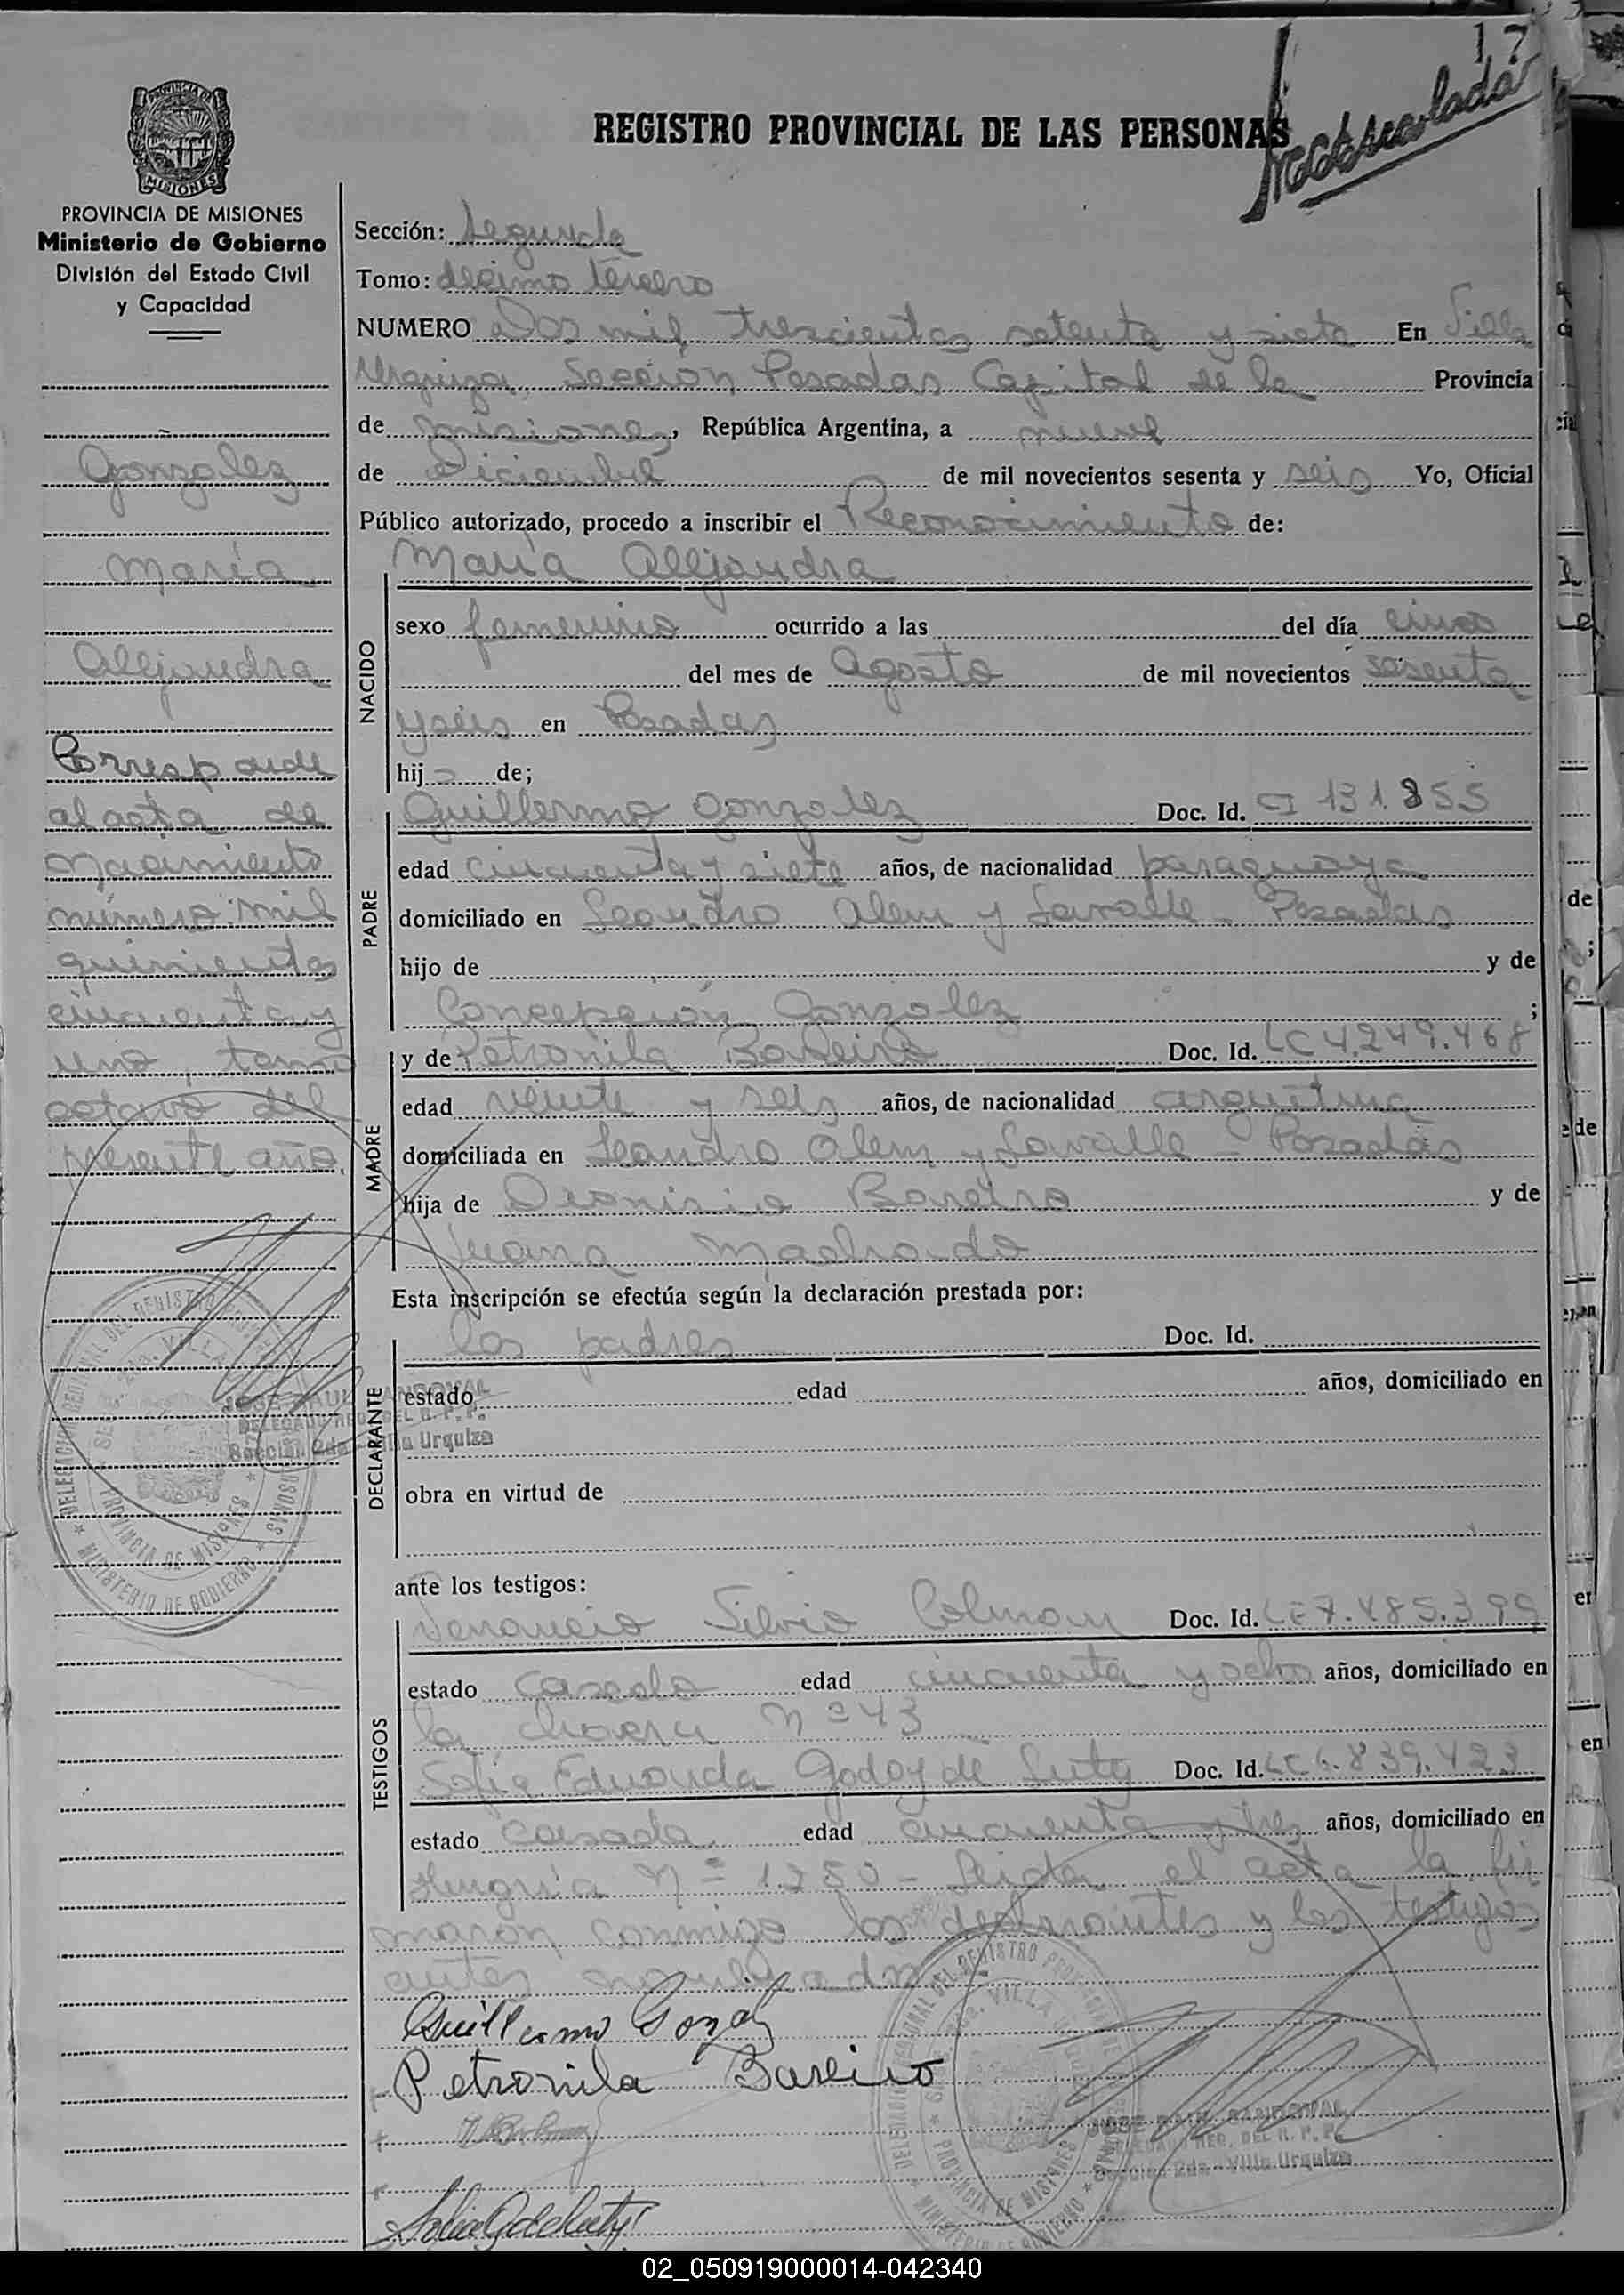 17
Inmatriculada
REGISTRO PROVINCIAL DE LAS PERSONAS
PROVINCIA DE MISIONES
Ministerio de Gobierno
División del Estado Civil
y Capacidad
Gonzalez
María
Alejandra
Corresponde
al acta de
nacimiento
número: mil
quinientos
cincuenta y
uno, tomo
octavo del
presente año.
Sección: Segunda
Tomo: decimo tercero
NUMERO Dos mil trescientos setenta y siete En Villa
Urquiza, Sección, Posadas Capital de la Provincia
de Misiones, República Argentina, a nueve
de Diciembre de mil novecientos sesenta y seis Yo, Oficial
Público autorizado, procedo a inscribir el Reconocimiento de:
María Alejandra
NACIDO
sexo femenino ocurrido a las del día cinco
del mes de Agosto de mil novecientos sesenta
y seis en Posadas
hij a de;
PADRE
Guillermo Gonzalez Doc. Id. CI 131.855
edad cincuenta y siete años, de nacionalidad paraguaya
domiciliado en Leandro Alem y Lavalle - Posadas
hijo de y de
Concepción Gonzalez ;
MADRE
y de Petronila Bareiro Doc. Id. LC 4.249.468
edad veinte y seis años, de nacionalidad argentina
domiciliada en Leandro Alem y Lavalle - Posadas
hija de Dionisio Bareiro y de
Juana Machado
Esta inscripción se efectúa según la declaración prestada por:
DECLARANTE
los padres Doc. Id.
estado edad años, domiciliado en
obra en virtud de
ante los testigos:
TESTIGOS
Venancio Silvio Colman Doc. Id. LE 7.485.399
estado casado edad cincuenta y ocho años, domiciliado en
la chacra Nº 43
Sofía Eduarda Godoy de Doc. Id. LC 6.839.423
estado casada edad cincuenta y tres años, domiciliado en
Hungría Nº 1.250 - Leida el acta la fir
maron conmigo los declarantes y los testigos
antes nombrados
Guillermo Gonzalez
Petronila Bareiro
DELEGACION REGIONAL DEL REGISTRO PROVINCIAL DE LAS PERSONAS
SECC. 2da. VILLA URQUIZA
PROVINCIA DE MISIONES
MINISTERIO DE GOBIERNO
JOSE RAUL SANDOVAL
DELEGADO REG. DEL R. P. P.
Sección 2da - Villa Urquiza
02_050919000014-042340